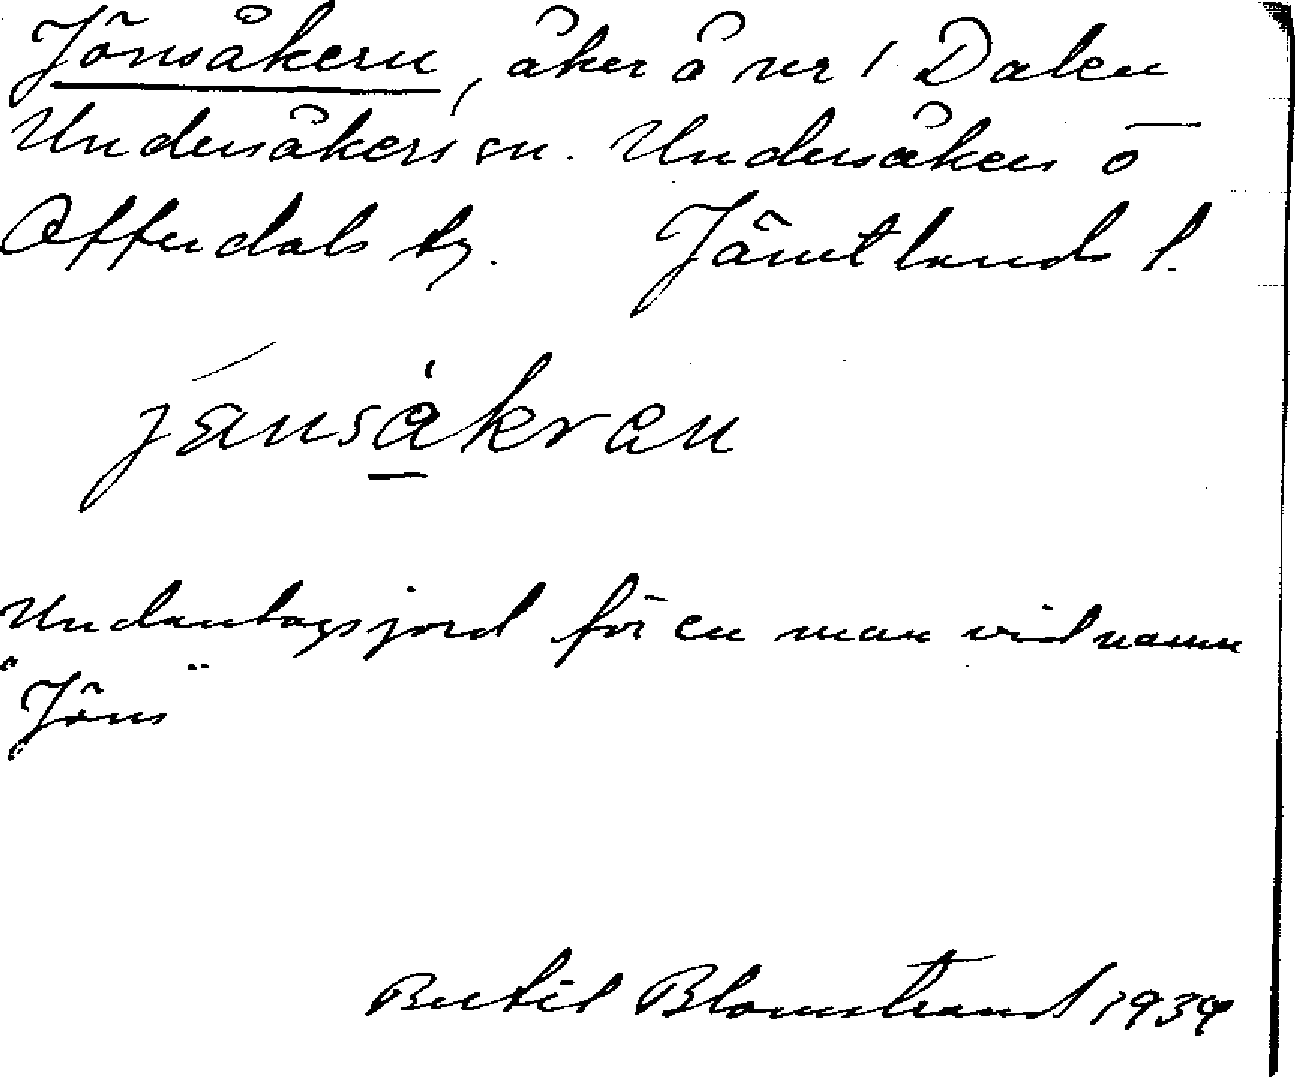 Jönsåkern, åker å nr 1 Dalen
Undersåkers sn. Undersåkers o
Offerdals tg. Jämtlands l.
jänsåkran
Undantagsjord för en man vid namn
"Jöns"
Bertil Blomstrand 1934